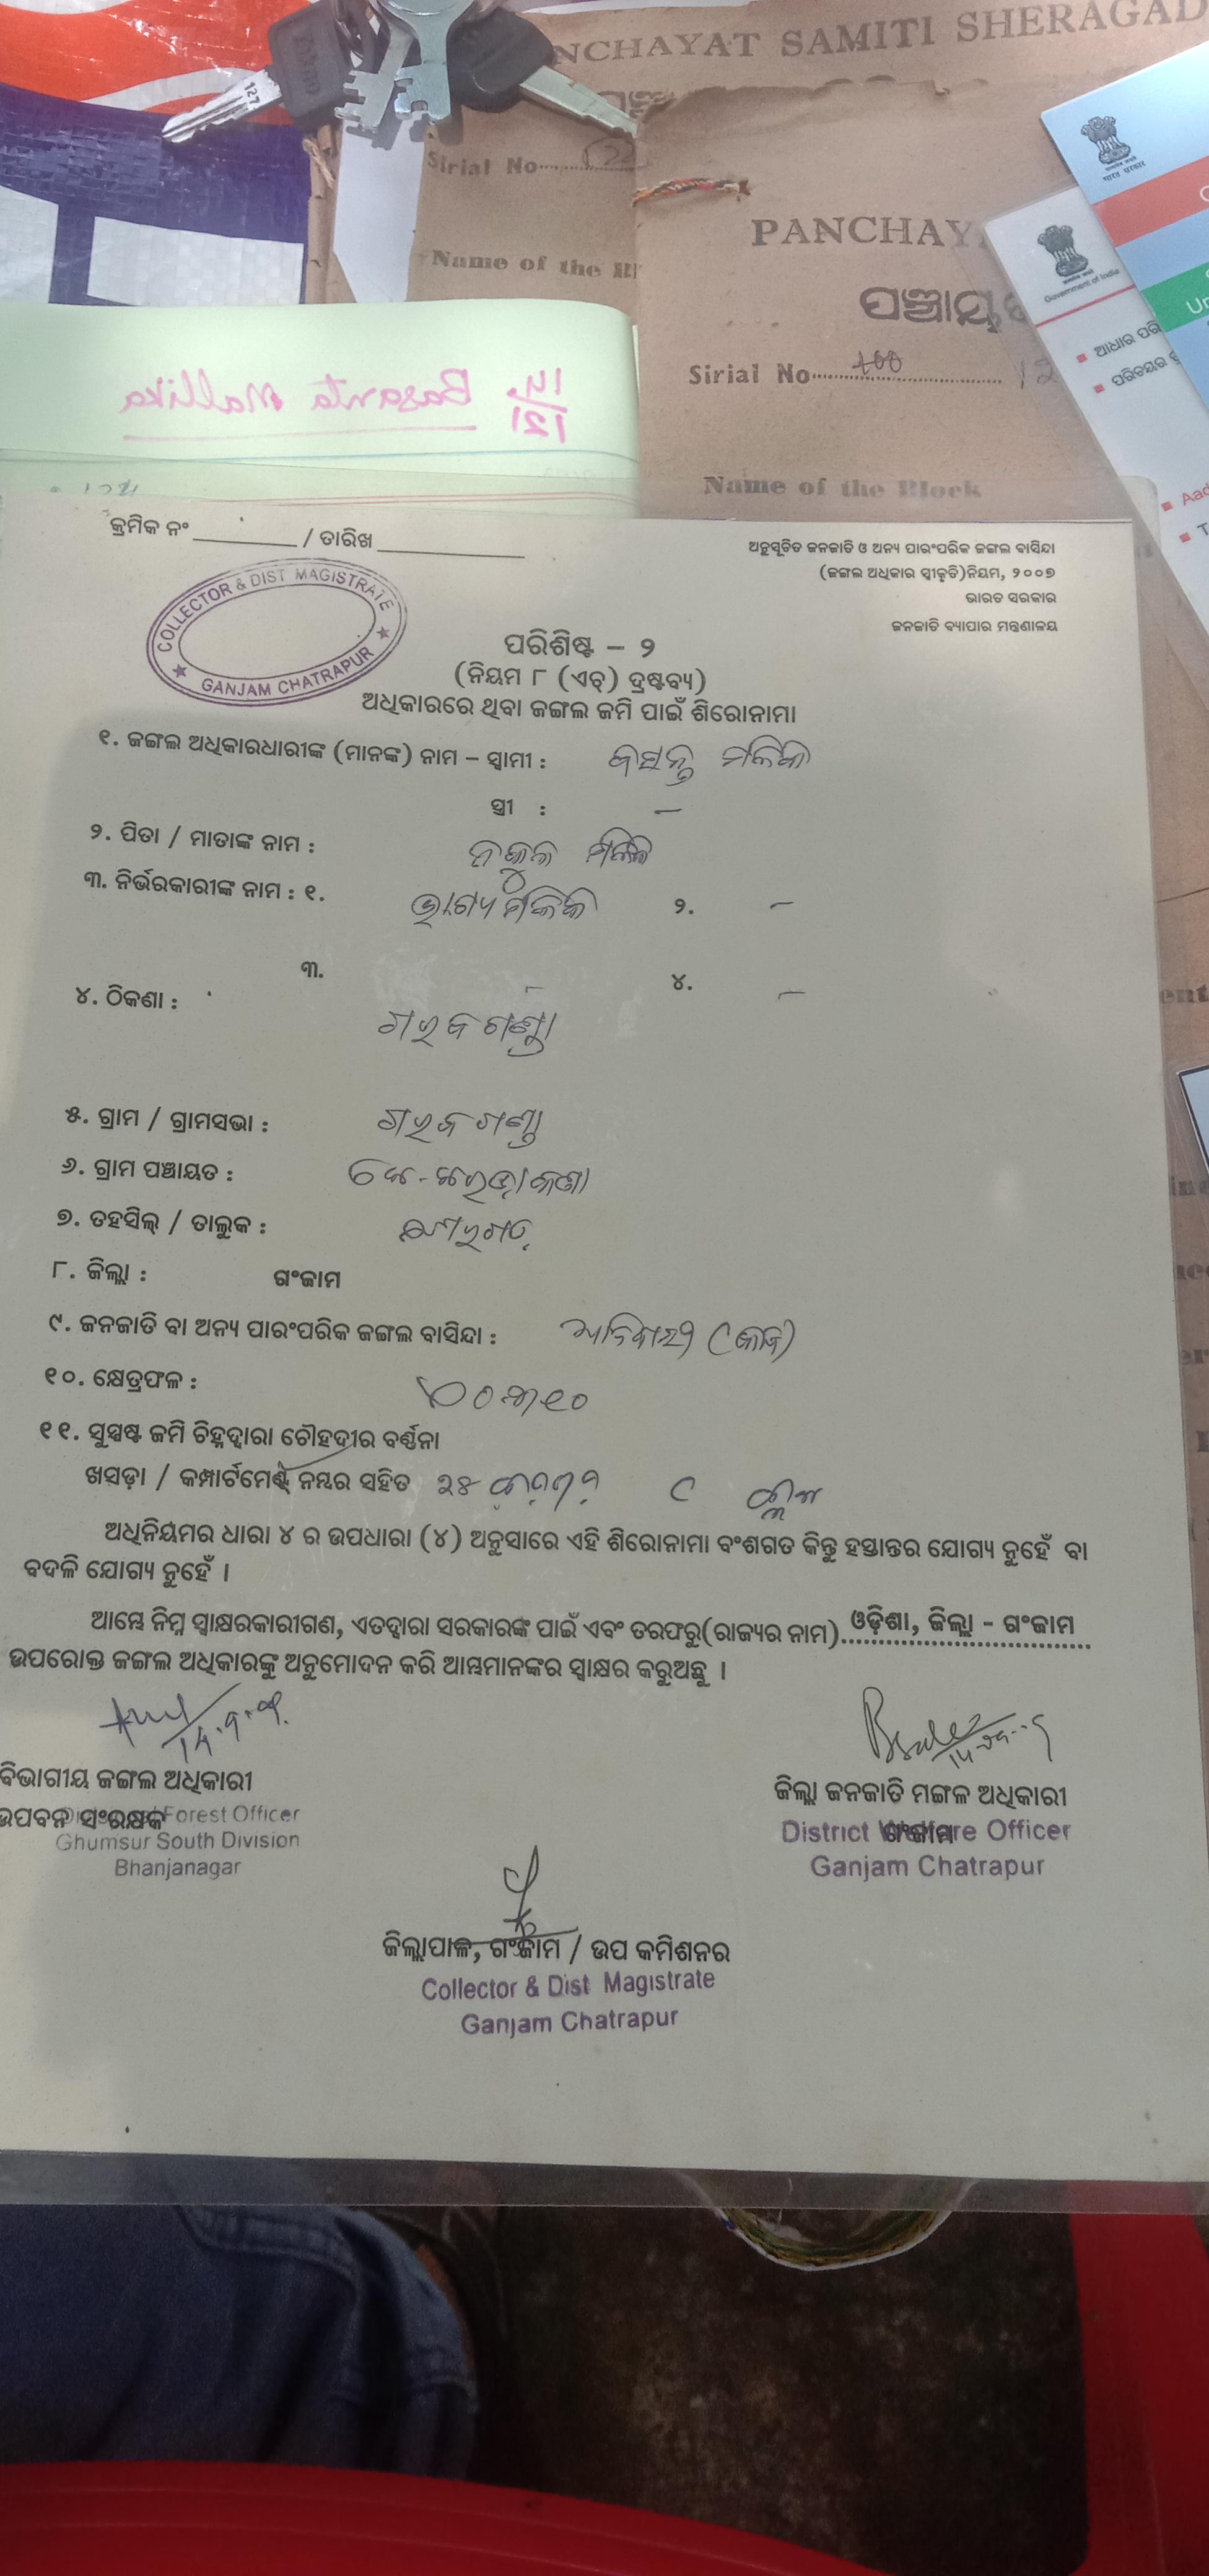 NCHAYAT SAMITI SHERAGAD
Sirial No
Name of the Bl
PANCHAY
ପଞ୍ଚାୟ
Sirial No 100
Name of the Block
भारत सरकार
Government of India
ଆଧାର ପରି
ପରିଚୟର
Aad
Basanta Mallika
14/121
କ୍ରମିକ ନଂ / ତାରିଖ
ଅନୁସୂଚିତ ଜନଜାତି ଓ ଅନ୍ୟ ପାରଂପରିକ ଜଙ୍ଗଲ ବାସିନ୍ଦା
(ଜଙ୍ଗଲ ଅଧିକାର ସ୍ୱୀକୃତି)ନିୟମ, ୨୦୦୭
ଭାରତ ସରକାର
ଜନଜାତି ବ୍ୟାପାର ମନ୍ତ୍ରଣାଳୟ
COLLECTOR & DIST MAGISTRATE
GANJAM CHATRAPUR
ପରିଶିଷ୍ଟ – ୨
(ନିୟମ ୮ (ଏଚ୍) ଦ୍ରଷ୍ଟବ୍ୟ)
ଅଧିକାରରେ ଥିବା ଜଙ୍ଗଲ ଜମି ପାଇଁ ଶିରୋନାମା
୧. ଜଙ୍ଗଲ ଅଧିକାରଧାରୀଙ୍କ (ମାନଙ୍କ) ନାମ – ସ୍ୱାମୀ : ବସନ୍ତ ମଲିକ
ସ୍ତ୍ରୀ : –
୨. ପିତା / ମାତାଙ୍କ ନାମ : ନକୁଳ ମଲିକ
୩. ନିର୍ଭରକାରୀଙ୍କ ନାମ : ୧. ଭାଗ୍ୟ ମଲିକ ୨. –
୩. – ୪. –
୪. ଠିକଣା :
୫. ଗ୍ରାମ / ଗ୍ରାମସଭା :
୬. ଗ୍ରାମ ପଞ୍ଚାୟତ :
୭. ତହସିଲ୍ / ତାଲୁକ :
୮. ଜିଲ୍ଲା : ଗଂଜାମ
୯. ଜନଜାତି ବା ଅନ୍ୟ ପାରଂପରିକ ଜଙ୍ଗଲ ବାସିନ୍ଦା : ଆଦିବାସୀ
୧୦. କ୍ଷେତ୍ରଫଳ :
୧୧. ସୁସ୍ପଷ୍ଟ ଜମି ଚିହ୍ନଦ୍ୱାରା ଚୌହଦୀର ବର୍ଣ୍ଣନା
ଖସଡ଼ା / କମ୍ପାର୍ଟମେଣ୍ଟ୍ ନମ୍ବର ସହିତ
ଅଧିନିୟମର ଧାରା ୪ ର ଉପଧାରା (୪) ଅନୁସାରେ ଏହି ଶିରୋନାମା ବଂଶଗତ କିନ୍ତୁ ହସ୍ତାନ୍ତର ଯୋଗ୍ୟ ନୁହେଁ ବା
ବଦଳି ଯୋଗ୍ୟ ନୁହେଁ ।
ଆମ୍ଭେ ନିମ୍ନ ସ୍ୱାକ୍ଷରକାରୀଗଣ, ଏତଦ୍ୱାରା ସରକାରଙ୍କ ପାଇଁ ଏବଂ ତରଫରୁ(ରାଜ୍ୟର ନାମ) ଓଡ଼ିଶା, ଜିଲ୍ଲା - ଗଂଜାମ
ଉପରୋକ୍ତ ଜଙ୍ଗଲ ଅଧିକାରଙ୍କୁ ଅନୁମୋଦନ କରି ଆମ୍ଭମାନଙ୍କର ସ୍ୱାକ୍ଷର କରୁଅଛୁ ।
ବିଭାଗୀୟ ଜଙ୍ଗଲ ଅଧିକାରୀ
ଉପବନ ସଂରକ୍ଷକ
Divisional Forest Officer
Ghumsur South Division
Bhanjanagar
ଜିଲ୍ଲା ଜନଜାତି ମଙ୍ଗଳ ଅଧିକାରୀ
ଗଂଜାମ
District Welfare Officer
Ganjam Chatrapur
ଜିଲ୍ଲାପାଳ, ଗଂଜାମ / ଉପ କମିଶନର
Collector & Dist Magistrate
Ganjam Chatrapur